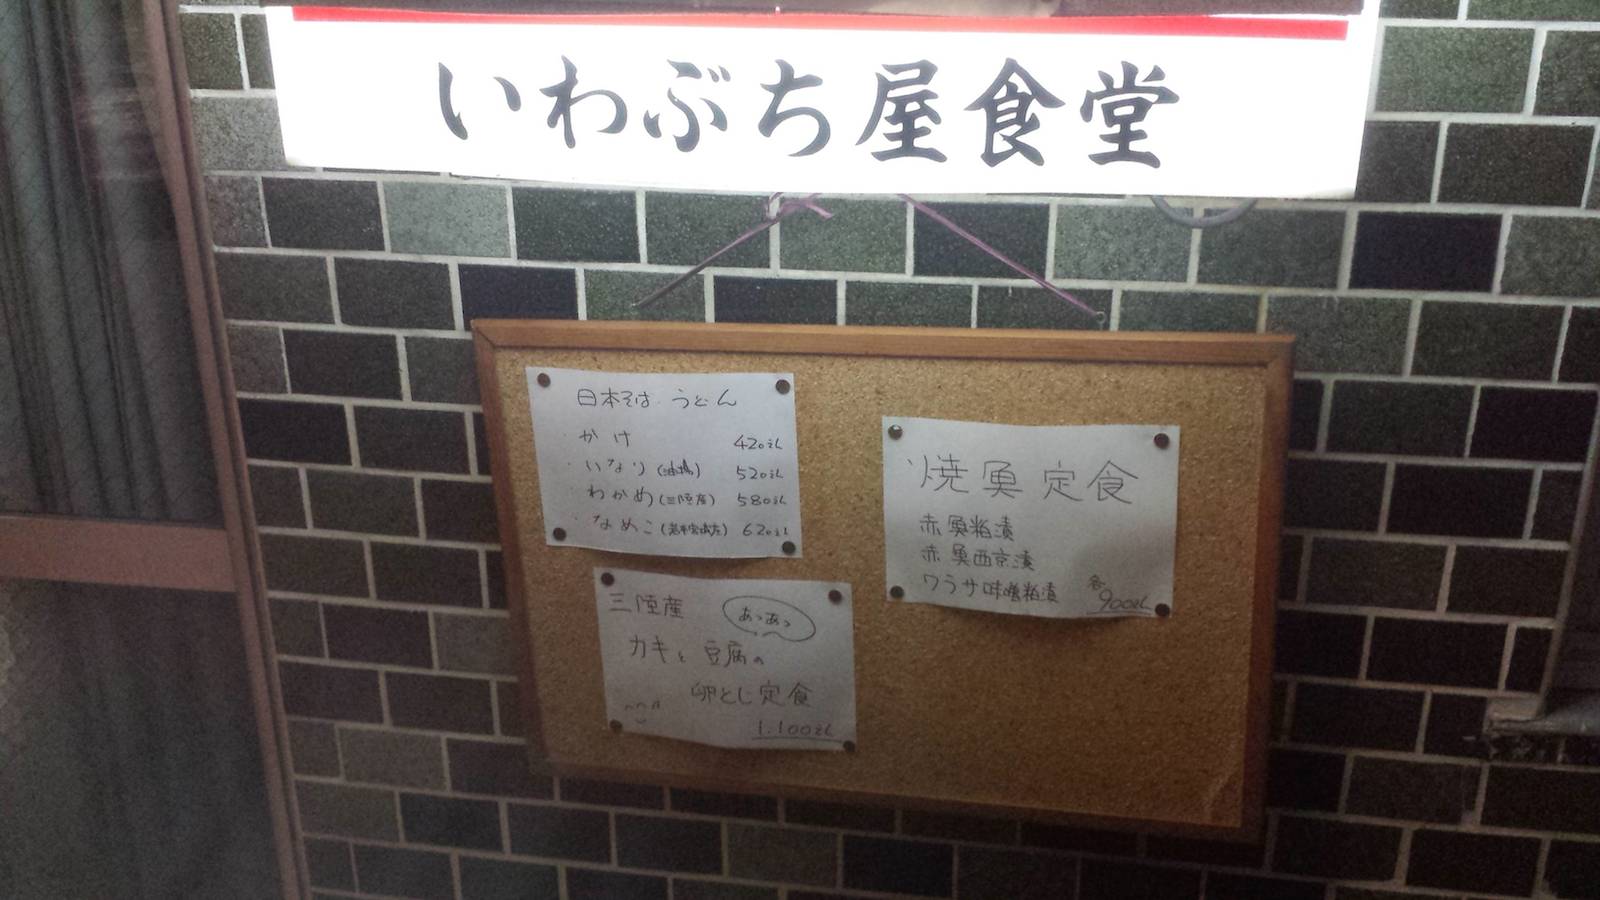 いわぶち屋食堂
日本そば うどん
・かけ 420円
・いなり(油揚) 520円
・わかめ(三陸産) 580円
・なめこ(岩手宮城産) 620円
三陸産 あつあつ
カキと豆腐の
卵とじ定食
1.100円
焼魚定食
赤魚粕漬
赤魚西京漬
ワラサ味噌粕漬 各900円